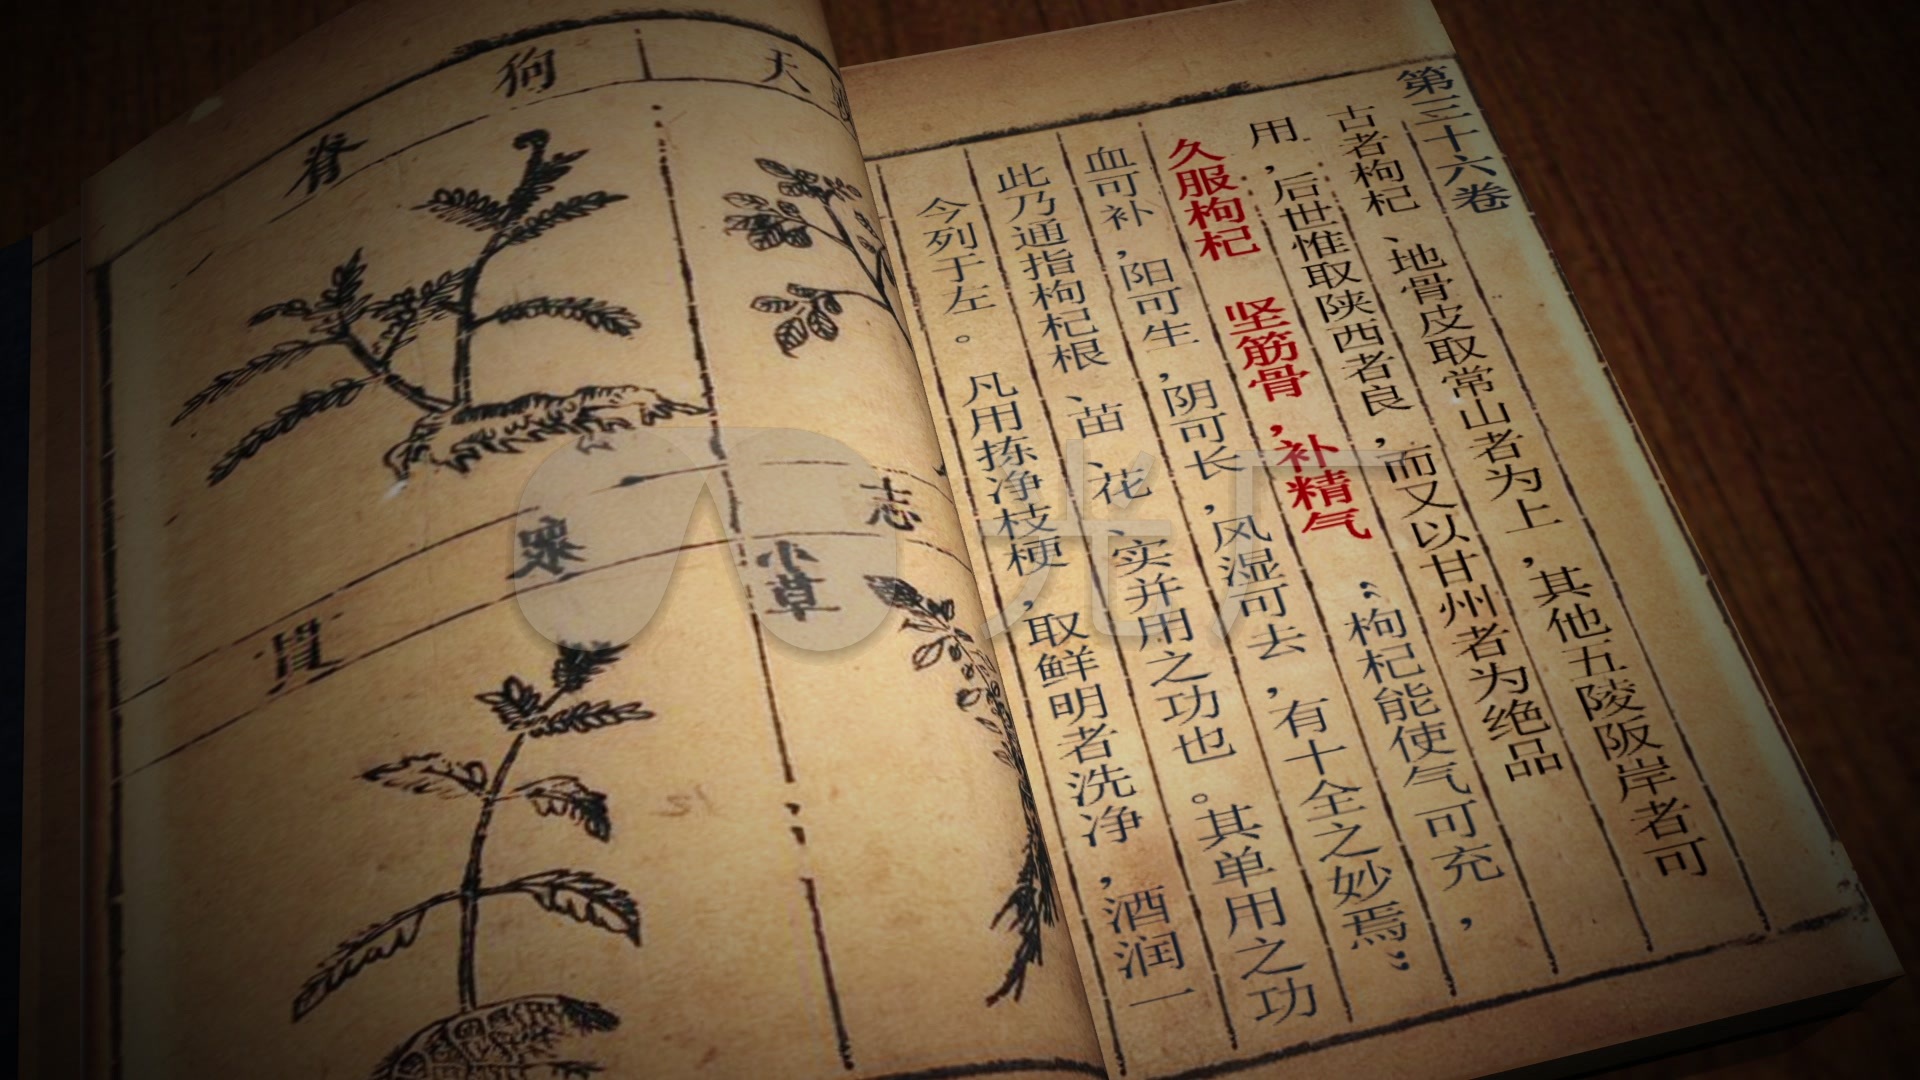 第三十六卷
古者枸杞、地骨皮取常山者为上，其他五陵阪岸者可
用，后世惟取陕西者良，而又以甘州者为绝品
久服枸杞 坚筋骨，补精气 “枸杞能使气可充，
血可补，阳可生，阴可长，风湿可去，有十全之妙焉”
此乃通指枸杞根、苗、花、实并用之功也。其单用之功
今列于左。凡用拣净枝梗，取鲜明者洗净，酒润一
天
狗
脊
志
小草
衆
貫
光厂